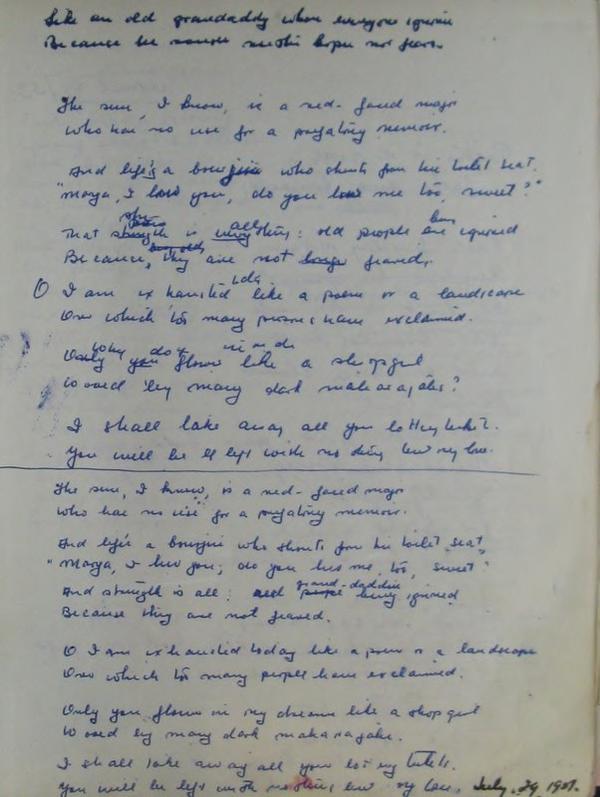 Like an old grandaddy whom everyone ignores
Because he nothing hopes nor fears.
The sun, I know, is a red-faced major
Who has no use for a purgatory memoir.
And life's a bourgeois who shouts from his toilet seat
"Marya, I love you, do you love me too, sweet?"
That strength is all : old people being ignored
Because, they are not feared.
O I am exhausted like a poem or a landscape
Over which too many persons have exclaimed.
Only you like a shopgirl
Wooed by many dark maharajahs?
I shall take away all your lottery tickets.
You will be left with nothing but my love.
The sun, I know, is a red-faced major
Who has no use for a purgatory memoir.
And life's a bourgeois who shouts from his toilet seat,
"Marya, I love you, do you love me, too, sweet?
And strength is all : grand-daddies being ignored
Because they are not feared.
O I am exhausted today like a poem or a landscape
Over which too many people have exclaimed.
Only you in my dreams like a shopgirl
Wooed by many dark maharajahs.
I shall take away all your tickets.
You will be left with nothing but my love. July, 29